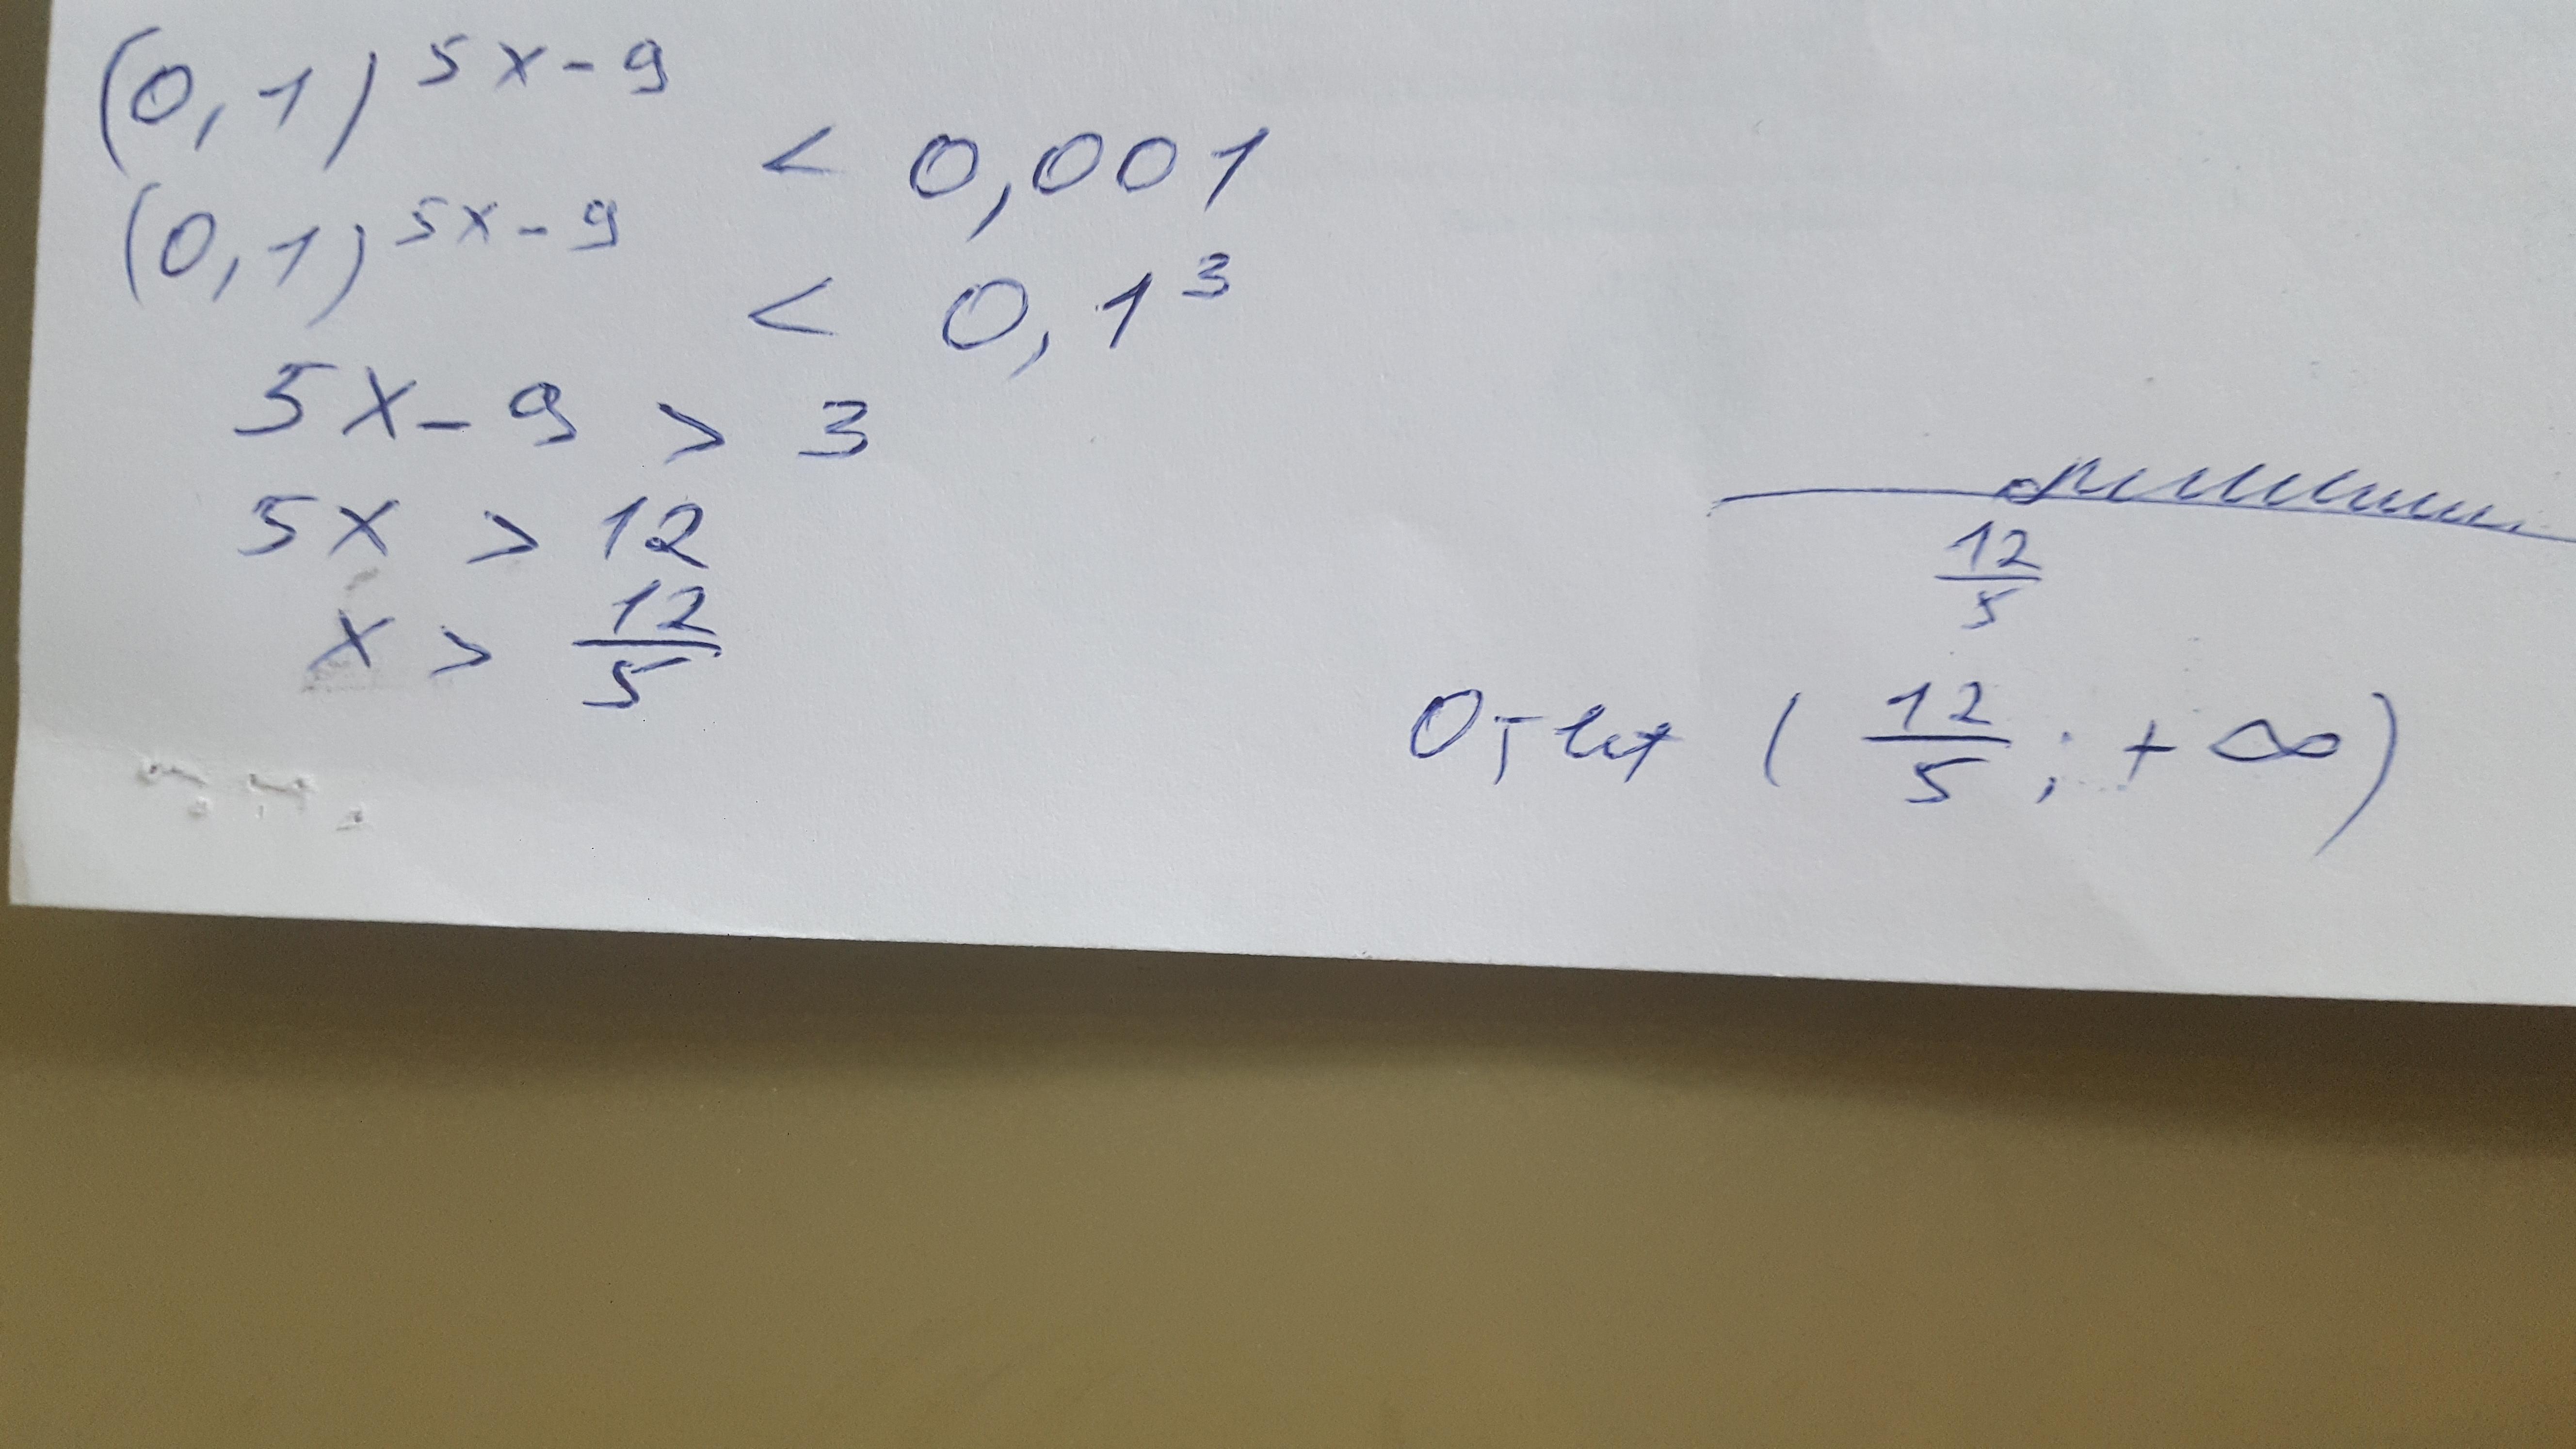 (0,1)^5x-9 < 0,001
(0,1)^5x-9 < 0,1^3
5x-9 > 3
5x > 12
x > 12/5
12/5
Ответ (12/5; +∞)